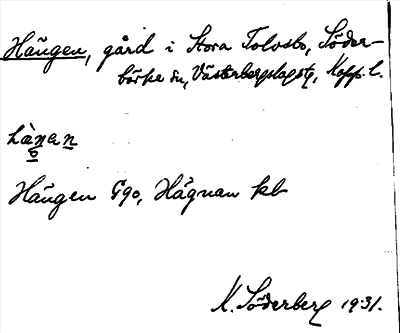 Haugen, gård i Stora Tolvsbo, Söder-
bärke sn, Västerbergslags tg, Kopp. l.
Haugen Ggo, Hågnan kb
K. Söderberg 1931.